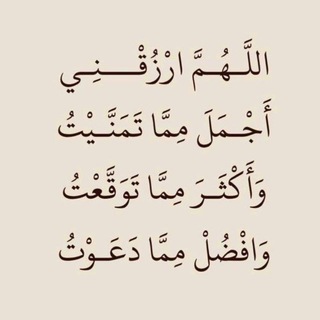 اللَّـهُـمَّ ارْزُقْـــنِـي
أَجْـمَلَ مِمَّا تَمَنَّـيْتُ
وَأَكْثَـرَ مِمَّا تَوَقَّعْتُ
وَافْضُلْ مِمَّا دَعَـوْتُ